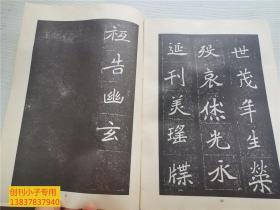 世茂年生榮
殁哀休光永
延刊美瑤牒
祗告幽玄
创刊小子专用
13837837940